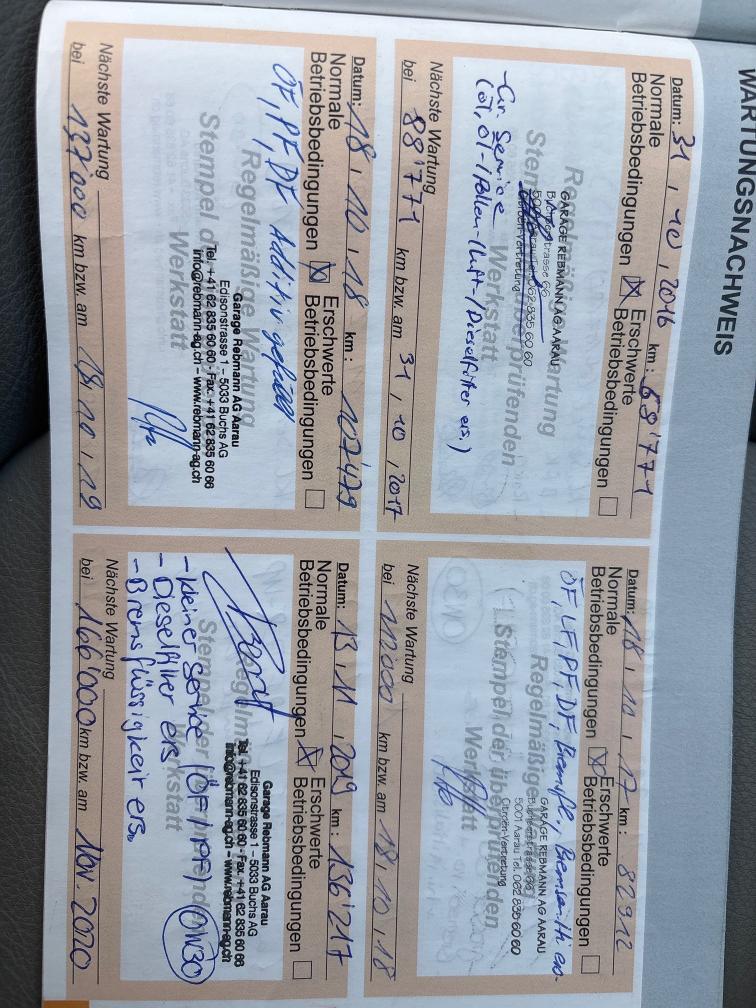 WARTUNGSNACHWEIS
Datum: 31, 10, 2016 km: 58'771
Normale Betriebsbedingungen ☒ Erschwerte Betriebsbedingungen ☐
Regelmäßige Wartung
Stempel der überprüfenden
Werkstatt
GARAGE REBMANN AG AARAU
Buchserstrasse 66
5001 Aarau Tel. 062 835 60 60
Citroën-Vertretung
- Gr. Service
(Öl, Öl-/Pollen-/Luft-/Dieselfilter ers.)
Nächste Wartung
bei 88'771 km bzw. am 31, 10, 2017
Datum: 18, 10, 17 km: 82912
Normale Betriebsbedingungen ☒ Erschwerte Betriebsbedingungen ☐
ÖF, LF, PF, DF,
Regelmäßige Wartung
Stempel der überprüfenden
Werkstatt
GARAGE REBMANN AG AARAU
Buchserstrasse 66
5001 Aarau Tel. 062 835 60 60
Citroën-Vertretung
OW30
Nächste Wartung
bei 112000 km bzw. am 18, 10, 18
Datum: 18, 10, 18 km: 107479
Normale Betriebsbedingungen ☒ Erschwerte Betriebsbedingungen ☐
ÖF, PF, DF Additiv gefüllt
Regelmäßige Wartung
Stempel d
Werkstatt
Garage Rebmann AG Aarau
Edisonstrasse 1 – 5033 Buchs AG
Tel. +41 62 835 60 60 - Fax. +41 62 835 60 66
info@rebmann-ag.ch – www.rebmann-ag.ch
Nächste Wartung
bei 137'000 km bzw. am 18, 10, 19
Datum: 13, 11, 2019 km: 136'217
Normale Betriebsbedingungen ☒ Erschwerte Betriebsbedingungen ☐
Garage Rebmann AG Aarau
Edisonstrasse 1 – 5033 Buchs AG
Tel. +41 62 835 60 60 - Fax. +41 62 835 60 66
info@rebmann-ag.ch – www.rebmann-ag.ch
- kleiner service (ÖF/PF) 0W30
- Dieselfilter ers
- Bremsflüssigkeit ers.
Nächste Wartung
bei 166'000 km bzw. am Nov. 2020